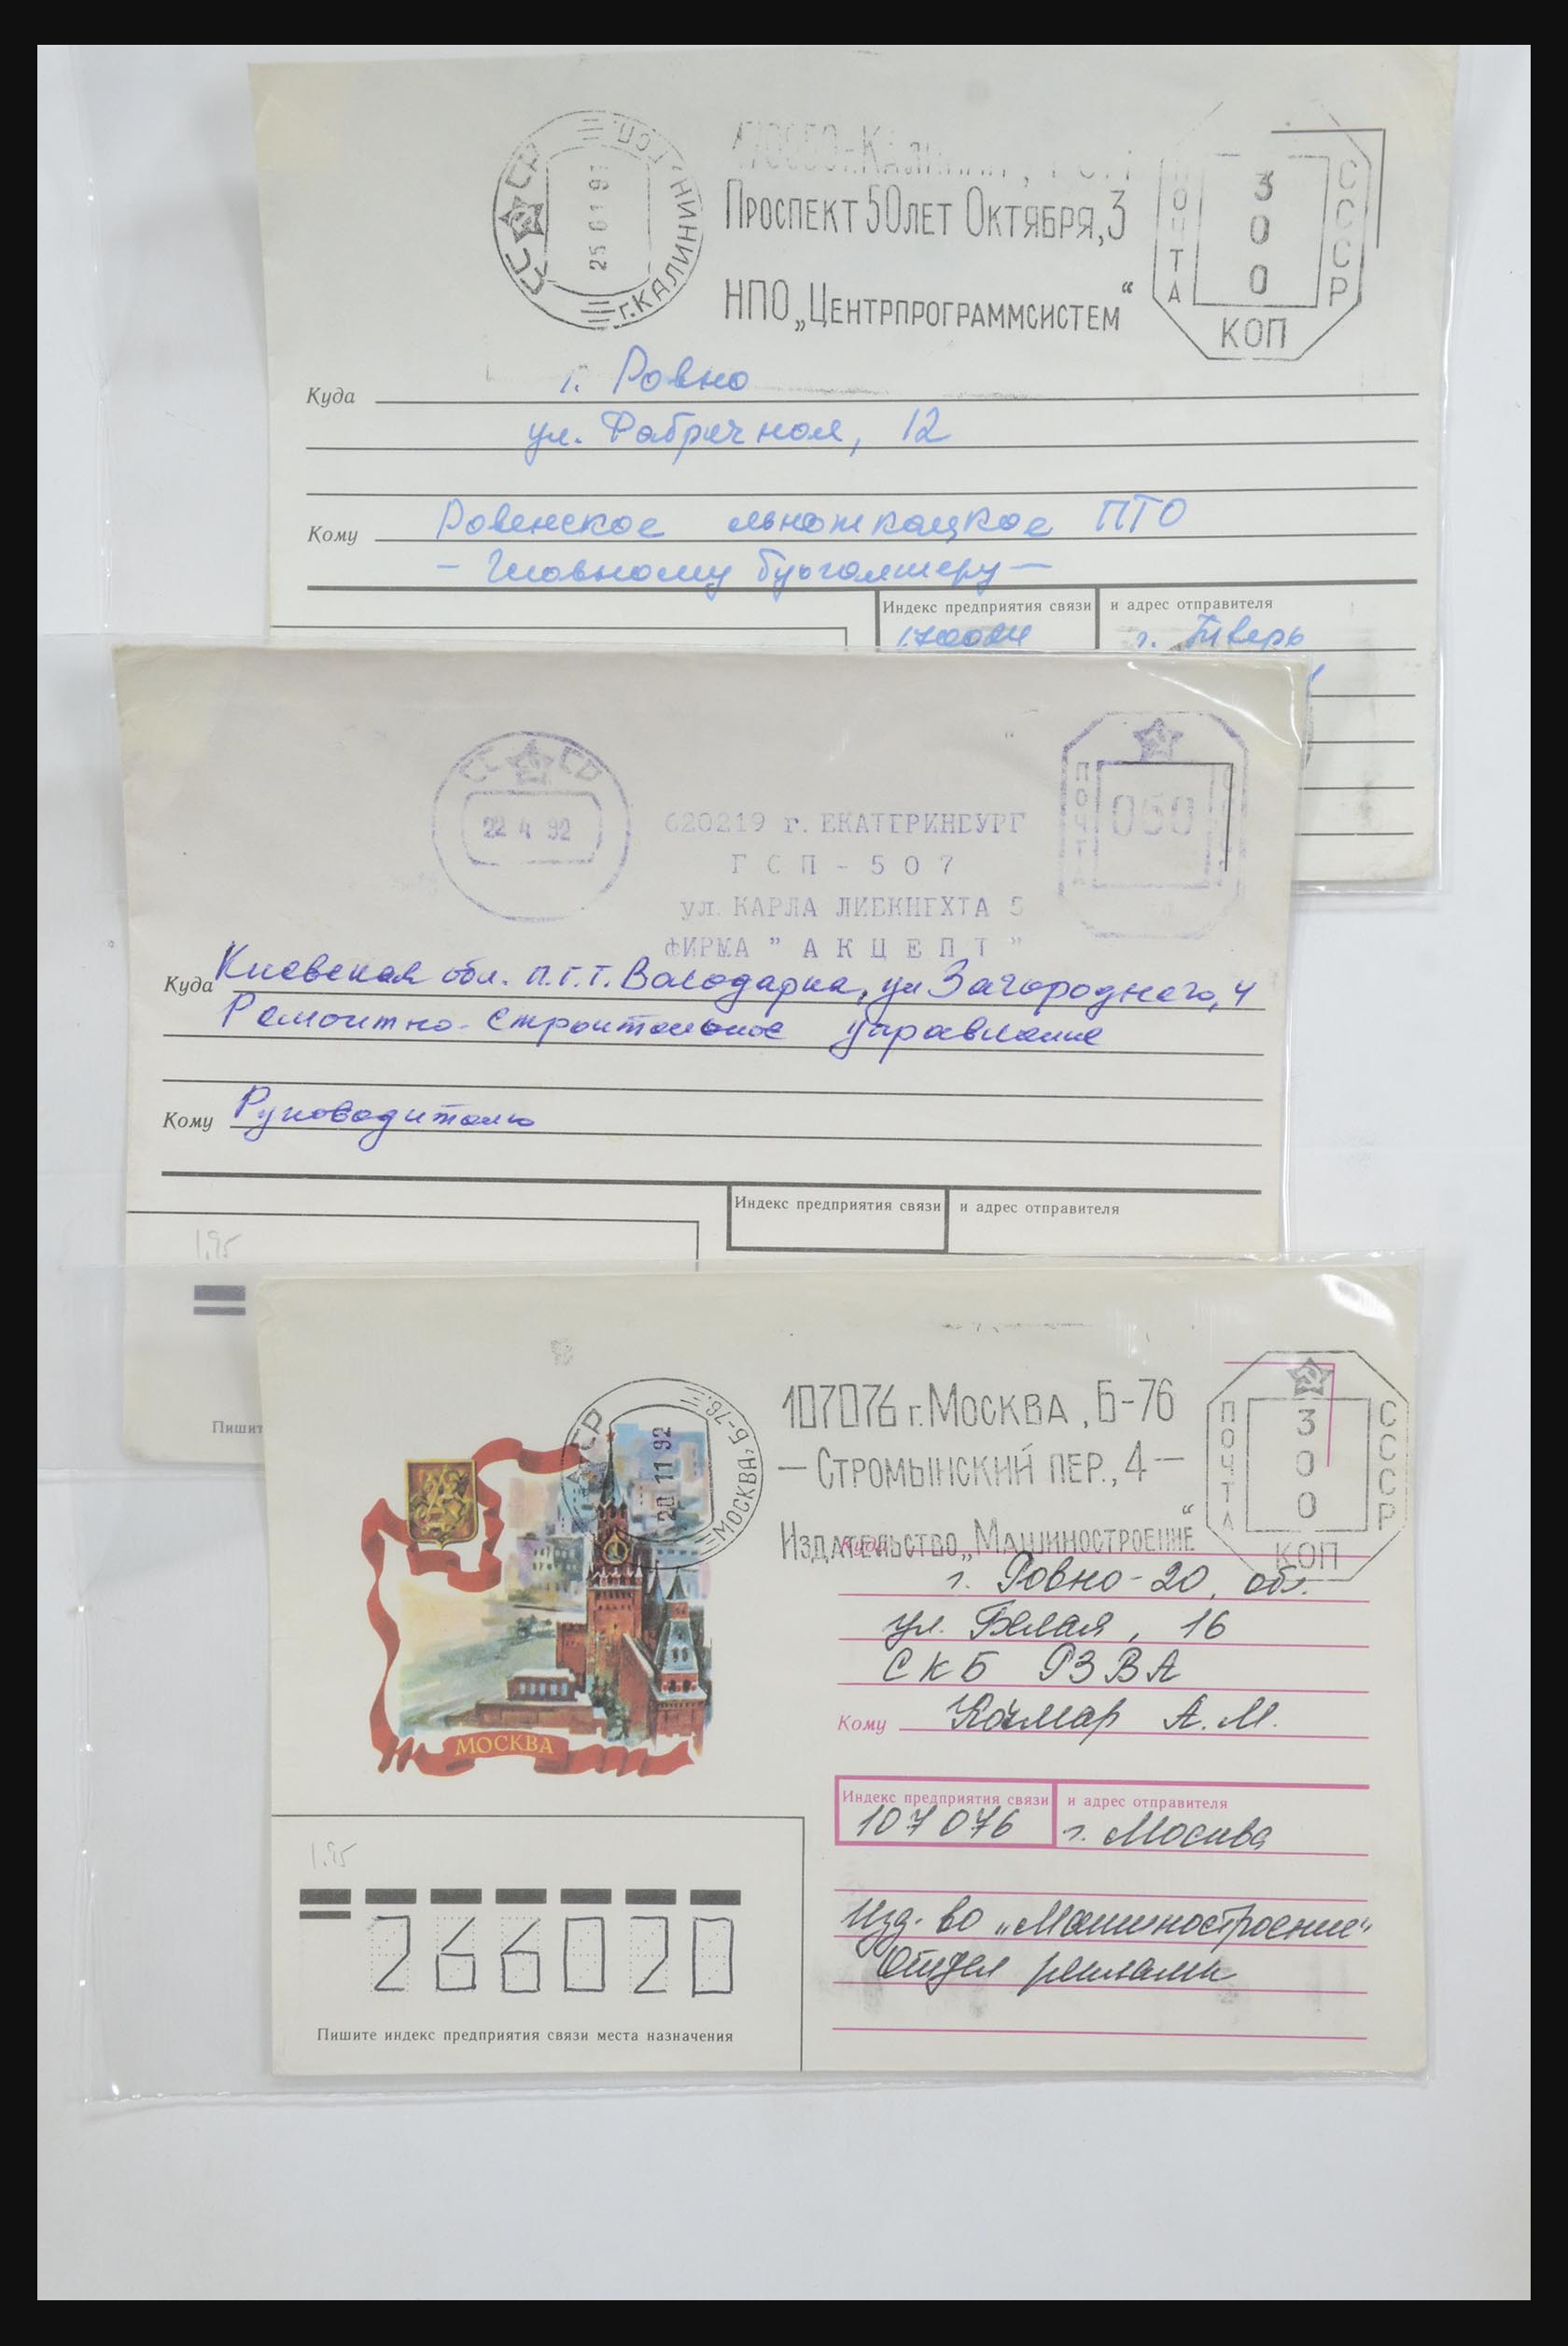 СССР
г. КАЛИНИН, ГСП.
Проспект 50лет Октября, 3
НПО „Центрпрограммсистем“
ПОЧТА
300
СССР
КОП
Куда г. Ровно
ул. Фабричная, 12
Кому Ровенское льноткацкое ПТО
- Главному бухгалтеру -
Индекс предприятия связи
и адрес отправителя
г. Тверь
СССР
22 4 92
620219 г. ЕКАТЕРИНБУРГ
ГСП-507
ул. КАРЛА ЛИБКНЕХТА 5
ФИРМА "АКЦЕПТ"
ПОЧТА
050
Куда Киевская обл. п.г.т. Володарка, ул Загороднего, 4
Ремонтно-строительное управление
Кому Руководителю
Индекс предприятия связи
и адрес отправителя
1.95
Пишит
СССР
20 11 92
МОСКВА, Б-76.
107076 г. Москва, Б-76
— Стромынский пер., 4 —
Издательство „Машиностроение“
ПОЧТА
300
СССР
КОП
МОСКВА
Куда
г. Ровно-20, обл.
ул. Белая, 16
СКБ РЗВА
Кому А.М.
Индекс предприятия связи
107076
и адрес отправителя
г. Москва
Изд-во „Машиностроение“
Отдел рекламы
1.95
266020
Пишите индекс предприятия связи места назначения